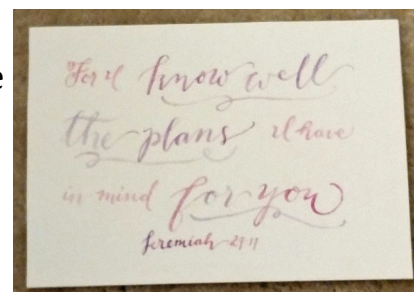 e
"For I know well
the plans I have
in mind for you
Jeremiah 29:11